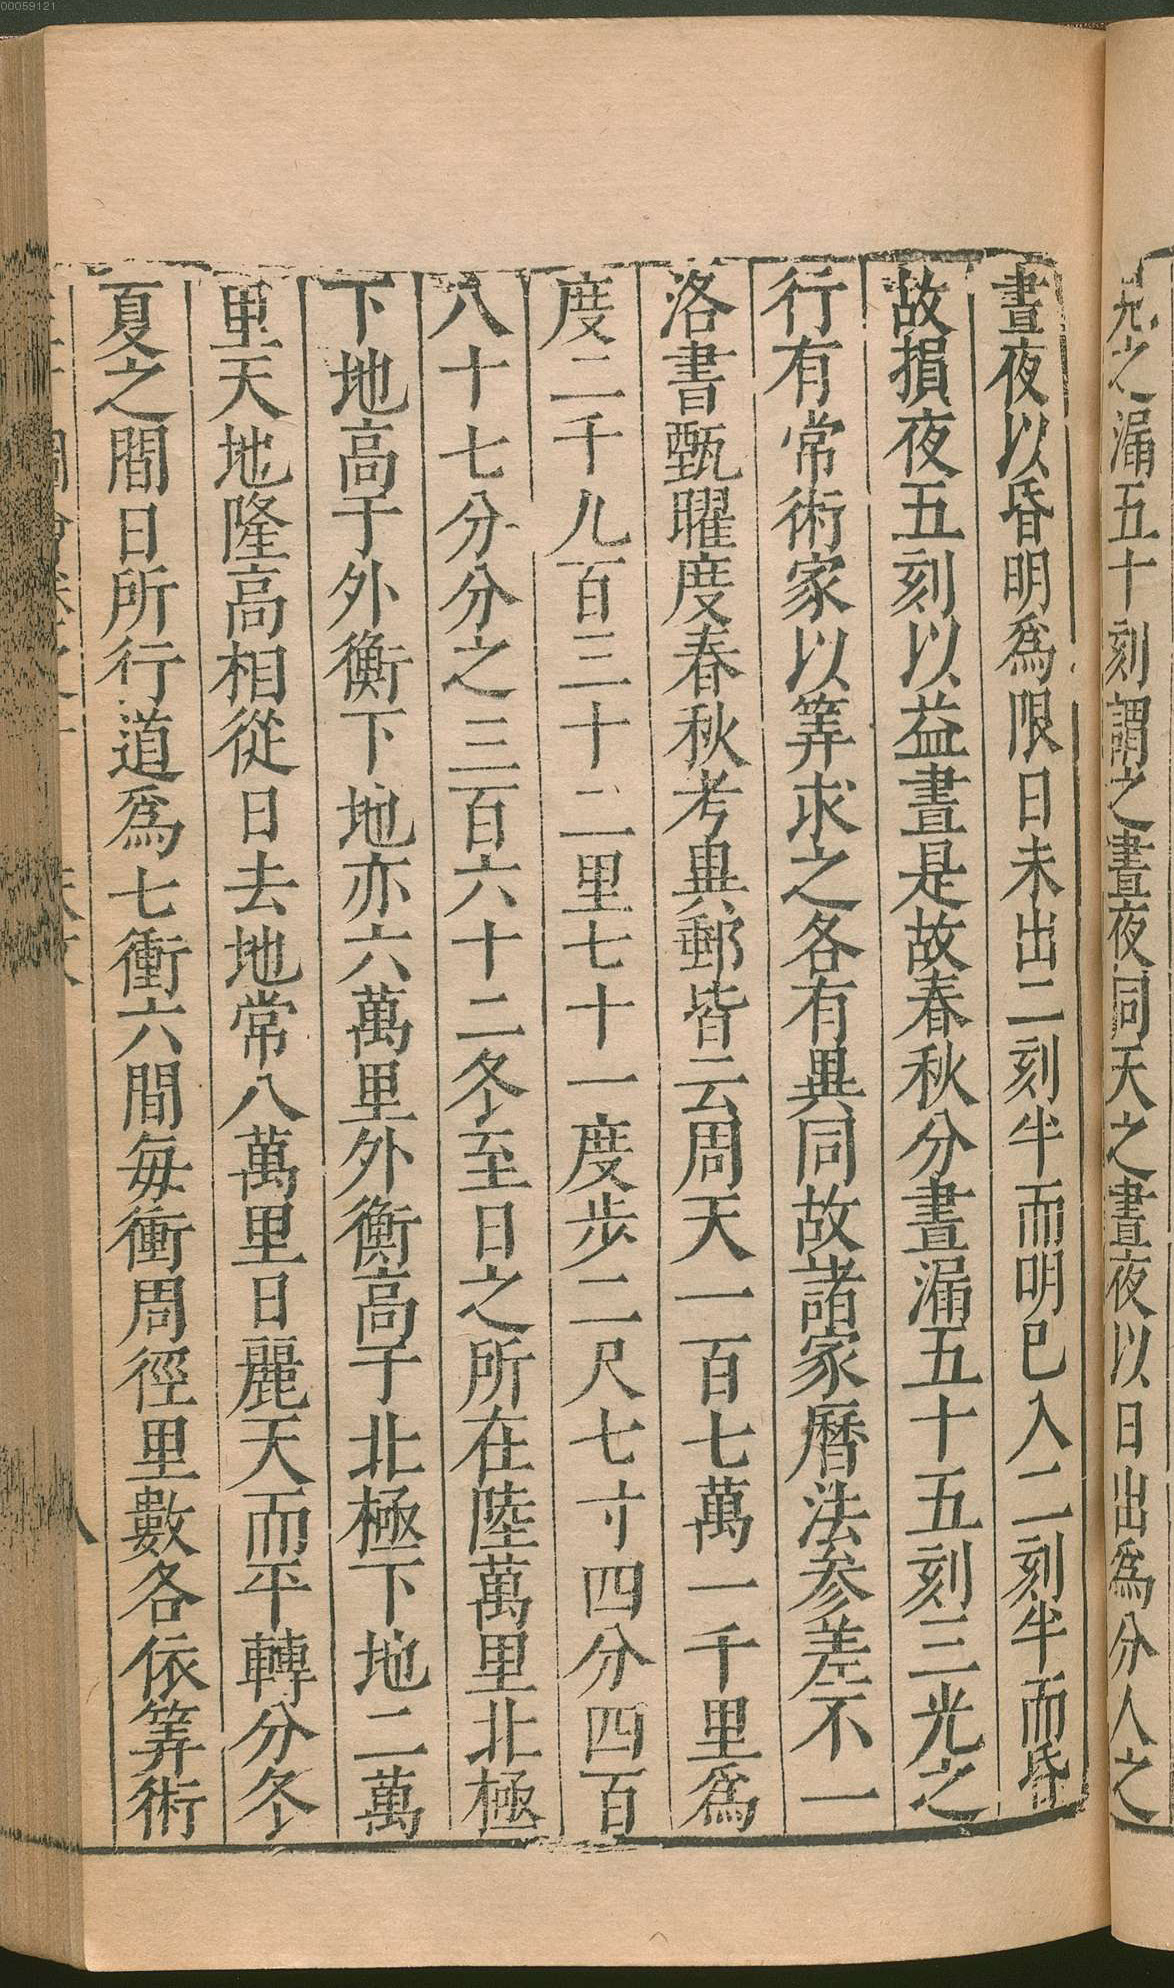 00059121
光之漏五十刻謂之晝夜同天之晝夜以日出爲分人之
晝夜以昏明爲限日未出二刻半而明已入二刻半而昏
故損夜五刻以益晝是故春秋分晝漏五十五刻三光之
行有常術家以筭求之各有異同故諸家曆法參差不一
洛書甄曜度春秋考異郵皆云周天一百七萬一千里爲
度二千九百三十二里七十一度步二尺七寸四分四百
八十七分分之三百六十二冬至日之所在陸萬里北極
下地高于外衡下地亦六萬里外衡高于北極下地二萬
里天地隆高相從日去地常八萬里日麗天而平轉分冬
夏之間日所行道爲七衡六間每衝周徑里數各依筭術
八